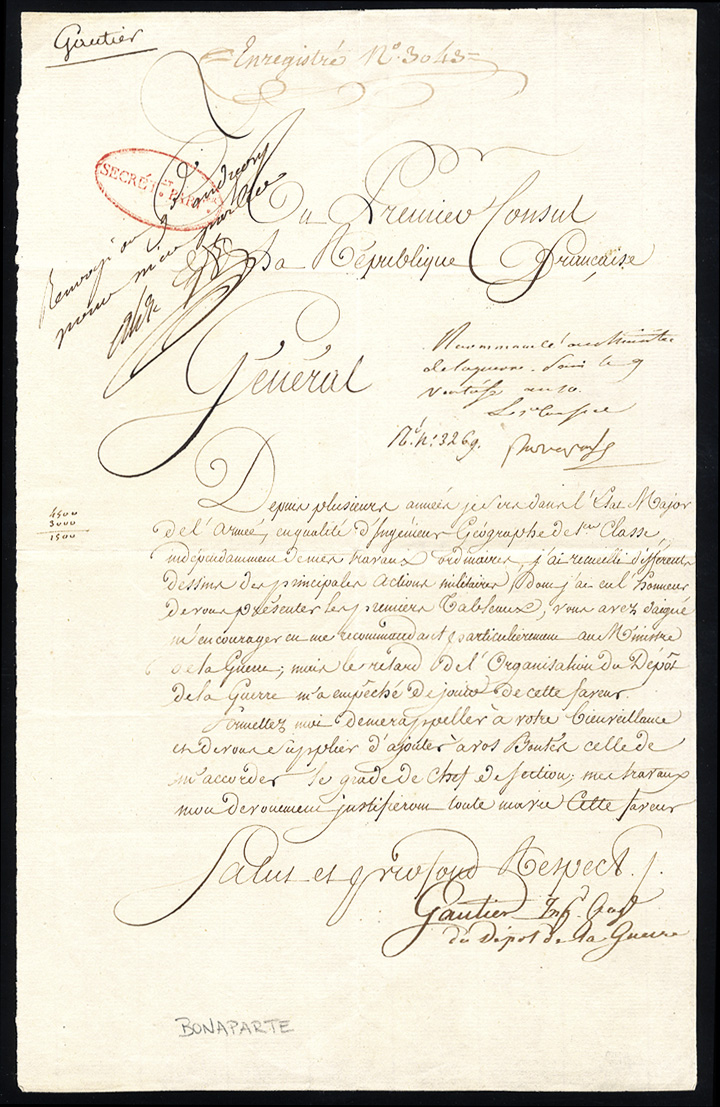 Gautier
Enregistré N.º 3043
SECRÉT.
Au Premier Consul
de la République française
Renvoyé au
Général
Recommandé au Ministre
de la guerre. Paris le 9
ventôse an 10.
Le 1er Consul
Bonaparte
N.º 3269.
4500
3000
1500
Depuis plusieurs années je sers dans l'État Major
de l'Armée, en qualité d'Ingénieur Géographe de 1ere Classe,
indépendamment de mes travaux ordinaires, j'ai recueilli différents
dessins des principales Actions militaires, dont j'ai eu l'honneur
de vous présenter les premiers Tableaux; vous avez daigné
m'encourager en me recommandant particulièrement au Ministre
de la Guerre; mais le retard de l'Organisation du Dépôt
de la Guerre m'a empêché de jouir de cette faveur.
Permettez moi de me rappeller à votre bienveillance
et de vous supplier d'ajouter à vos Bontés celle de
m'accorder le grade de Chef de section; mes travaux
mon dévouement justifieront toute ma vie cette faveur
Salut et profond Respect.
Gautier Ing.r Géog
du Dépôt de la Guerre
BONAPARTE